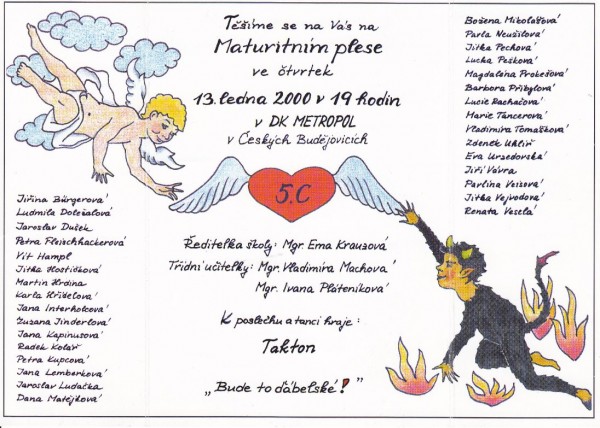 Těšíme se na Vás na
Maturitním plese
ve čtvrtek
13. ledna 2000 v 19 hodin
v DK METROPOL
v Českých Budějovicích
5.C
Ředitelka školy: Mgr. Ema Krausová
Třídní učitelky: Mgr. Vladimíra Machová
Mgr. Ivana Pláteníková
K poslechu a tanci hraje:
Takton
„Bude to ďábelské!"
Jiřina Bürgerová
Ludmila Doležalová
Jaroslav Dušek
Petra Fleischhackerová
Vít Hampl
Jitka Hostičková
Martin Hrdina
Karla Hřídelová
Jana Interholcová
Zuzana Jinderlová
Jana Kapinusová
Radek Kolář
Petra Kupcová
Jana Lemberková
Jaroslav Ludačka
Dana Matějková
Božena Mikolášová
Pavla Neužilová
Jitka Pechová
Lucha Pešková
Magdaléna Prokešová
Barbora Přibylová
Lucie Rachačová
Marie Tancerová
Vladimíra Tomášková
Zdeněk Uhlíř
Eva Urzedovská
Jiří Vávra
Pavlína Veisová
Jitka Vejvodová
Renata Veselá